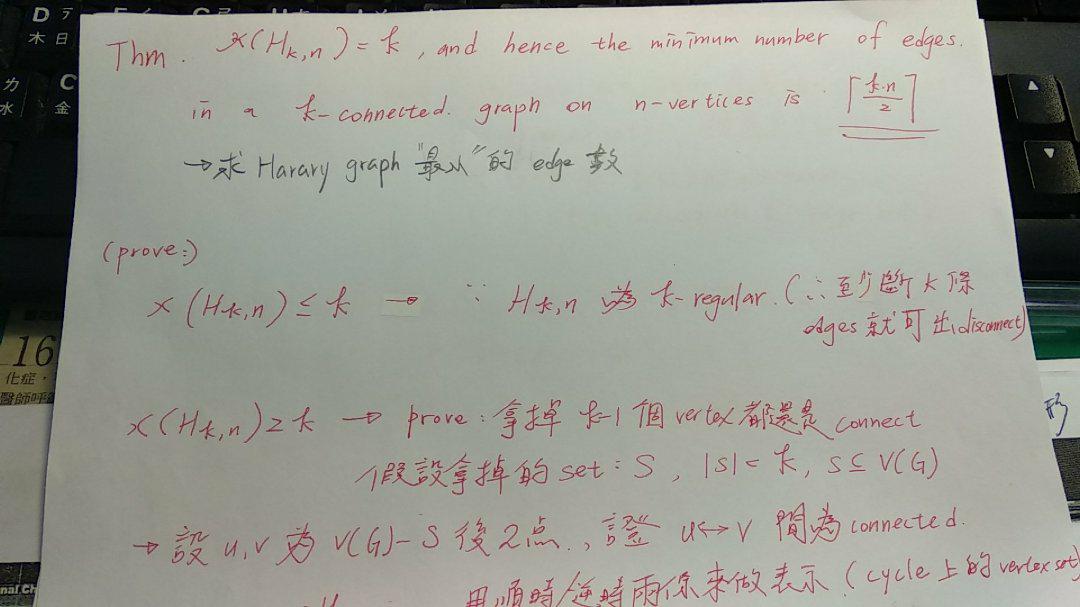 Thm. κ(H_{k,n}) = k , and hence the minimum number of edges.
in a k-connected. graph on n-vertices is ⌈k·n/2⌉
→求 Harary graph "最小"的 edge 數
(prove:)
κ(H_{k,n}) ≤ k → ∵ H_{k,n} 為 k-regular. (∴至少斷 k 條
edges 就可出 disconnect)
κ(H_{k,n}) ≥ k → prove : 拿掉 k-1 個 vertex 都還是 connect
假設拿掉的 set : S , |S| = k, S ⊆ V(G)
→ 設 u,v 為 V(G)-S 後 2点., 證 u↔v 間為 connected.
用順時/逆時兩條來做表示 ( cycle 上的 vertex set)
D
木 日
力
水
C
金
16
化症,
醫師呼
nal Ch
形